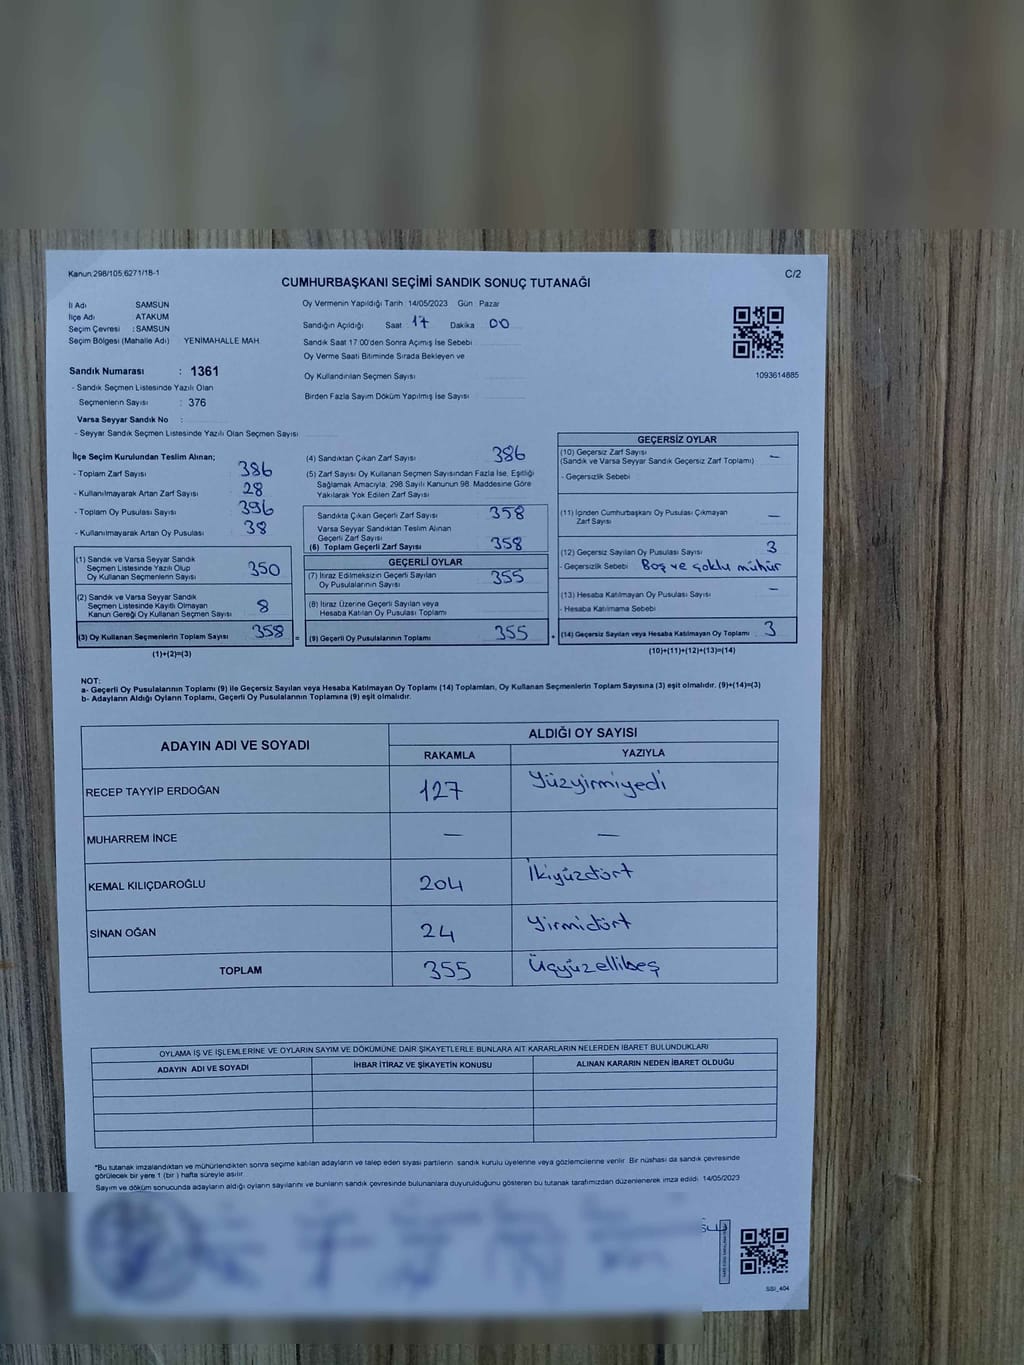 Kanun:298/105,6271/18-1
C/2
CUMHURBAŞKANI SEÇİMİ SANDIK SONUÇ TUTANAĞI
İl Adı SAMSUN
İlçe Adı ATAKUM
Seçim Çevresi : SAMSUN
Seçim Bölgesi (Mahalle Adı) YENİMAHALLE MAH.
Sandık Numarası : 1361
- Sandık Seçmen Listesinde Yazılı Olan
Seçmenlerin Sayısı : 376
Varsa Seyyar Sandık No :
- Seyyar Sandık Seçmen Listesinde Yazılı Olan Seçmen Sayısı
Oy Vermenin Yapıldığı Tarih : 14/05/2023 Gün : Pazar
Sandığın Açıldığı Saat 17 Dakika 00
Sandık Saat 17:00'den Sonra Açımış İse Sebebi
Oy Verme Saati Bitiminde Sırada Bekleyen ve
Oy Kullandırılan Seçmen Sayısı
Birden Fazla Sayım Döküm Yapılmış İse Sayısı
1093614885
İlçe Seçim Kurulundan Teslim Alınan;
- Toplam Zarf Sayısı 386
- Kullanılmayarak Artan Zarf Sayısı 28
- Toplam Oy Pusulası Sayısı 396
- Kullanılmayarak Artan Oy Pusulası 38
(1) Sandık ve Varsa Seyyar Sandık
Seçmen Listesinde Yazılı Olup
Oy Kullanan Seçmenlerin Sayısı 350
(2) Sandık ve Varsa Seyyar Sandık
Seçmen Listesinde Kayıtlı Olmayan
Kanun Gereği Oy Kullanan Seçmen Sayısı 8
(3) Oy Kullanan Seçmenlerin Toplam Sayısı 358 =
(1)+(2)=(3)
(4) Sandıktan Çıkan Zarf Sayısı 386
(5) Zarf Sayısı Oy Kullanan Seçmen Sayısından Fazla İse, Eşitliği
Sağlamak Amacıyla, 298 Sayılı Kanunun 98. Maddesine Göre
Yakılarak Yok Edilen Zarf Sayısı
Sandıkta Çıkan Geçerli Zarf Sayısı 358
Varsa Seyyar Sandıktan Teslim Alınan
Geçerli Zarf Sayısı
(6) Toplam Geçerli Zarf Sayısı 358
GEÇERLİ OYLAR
(7) İtiraz Edilmeksizin Geçerli Sayılan
Oy Pusulalarının Sayısı 355
(8) İtiraz Üzerine Geçerli Sayılan veya
Hesaba Katılan Oy Pusulası Toplamı
(9) Geçerli Oy Pusulalarının Toplamı 355 +
GEÇERSİZ OYLAR
(10) Geçersiz Zarf Sayısı
(Sandık ve Varsa Seyyar Sandık Geçersiz Zarf Toplamı) —
- Geçersizlik Sebebi
(11) İçinden Cumhurbaşkanı Oy Pusulası Çıkmayan
Zarf Sayısı —
(12) Geçersiz Sayılan Oy Pusulası Sayısı 3
- Geçersizlik Sebebi Boş ve çoklu mühür
(13) Hesaba Katılmayan Oy Pusulası Sayısı —
- Hesaba Katılmama Sebebi
(14) Geçersiz Sayılan veya Hesaba Katılmayan Oy Toplamı 3
(10)+(11)+(12)+(13)=(14)
NOT:
a- Geçerli Oy Pusulalarının Toplamı (9) ile Geçersiz Sayılan veya Hesaba Katılmayan Oy Toplamı (14) Toplamları, Oy Kullanan Seçmenlerin Toplam Sayısına (3) eşit olmalıdır. (9)+(14)=(3)
b- Adayların Aldığı Oyların Toplamı, Geçerli Oy Pusulalarının Toplamına (9) eşit olmalıdır.
ADAYIN ADI VE SOYADI ALDIĞI OY SAYISI
RAKAMLA YAZIYLA
RECEP TAYYİP ERDOĞAN 127 Yüzyirmiyedi
MUHARREM İNCE — —
KEMAL KILIÇDAROĞLU 204 İkiyüzdört
SİNAN OĞAN 24 Yirmidört
TOPLAM 355 Üçyüzellibeş
OYLAMA İŞ VE İŞLEMLERİNE VE OYLARIN SAYIM VE DÖKÜMÜNE DAİR ŞİKAYETLERLE BUNLARA AİT KARARLARIN NELERDEN İBARET BULUNDUKLARI
ADAYIN ADI VE SOYADI İHBAR İTİRAZ VE ŞİKAYETİN KONUSU ALINAN KARARIN NEDEN İBARET OLDUĞU
*Bu tutanak imzalandıktan ve mühürlendikten sonra seçime katılan adayların ve talep eden siyasi partilerin sandık kurulu üyelerine veya gözlemcilerine verilir. Bir nüshası da sandık çevresinde
görülecek bir yere 1 (bir) hafta süreyle asılır.
Sayım ve döküm sonucunda adayların aldığı oyların sayılarını ve bunların sandık çevresinde bulunanlara duyurulduğunu gösteren bu tutanak tarafımızdan düzenlenerek imza edildi. 14/05/2023
SSI_404